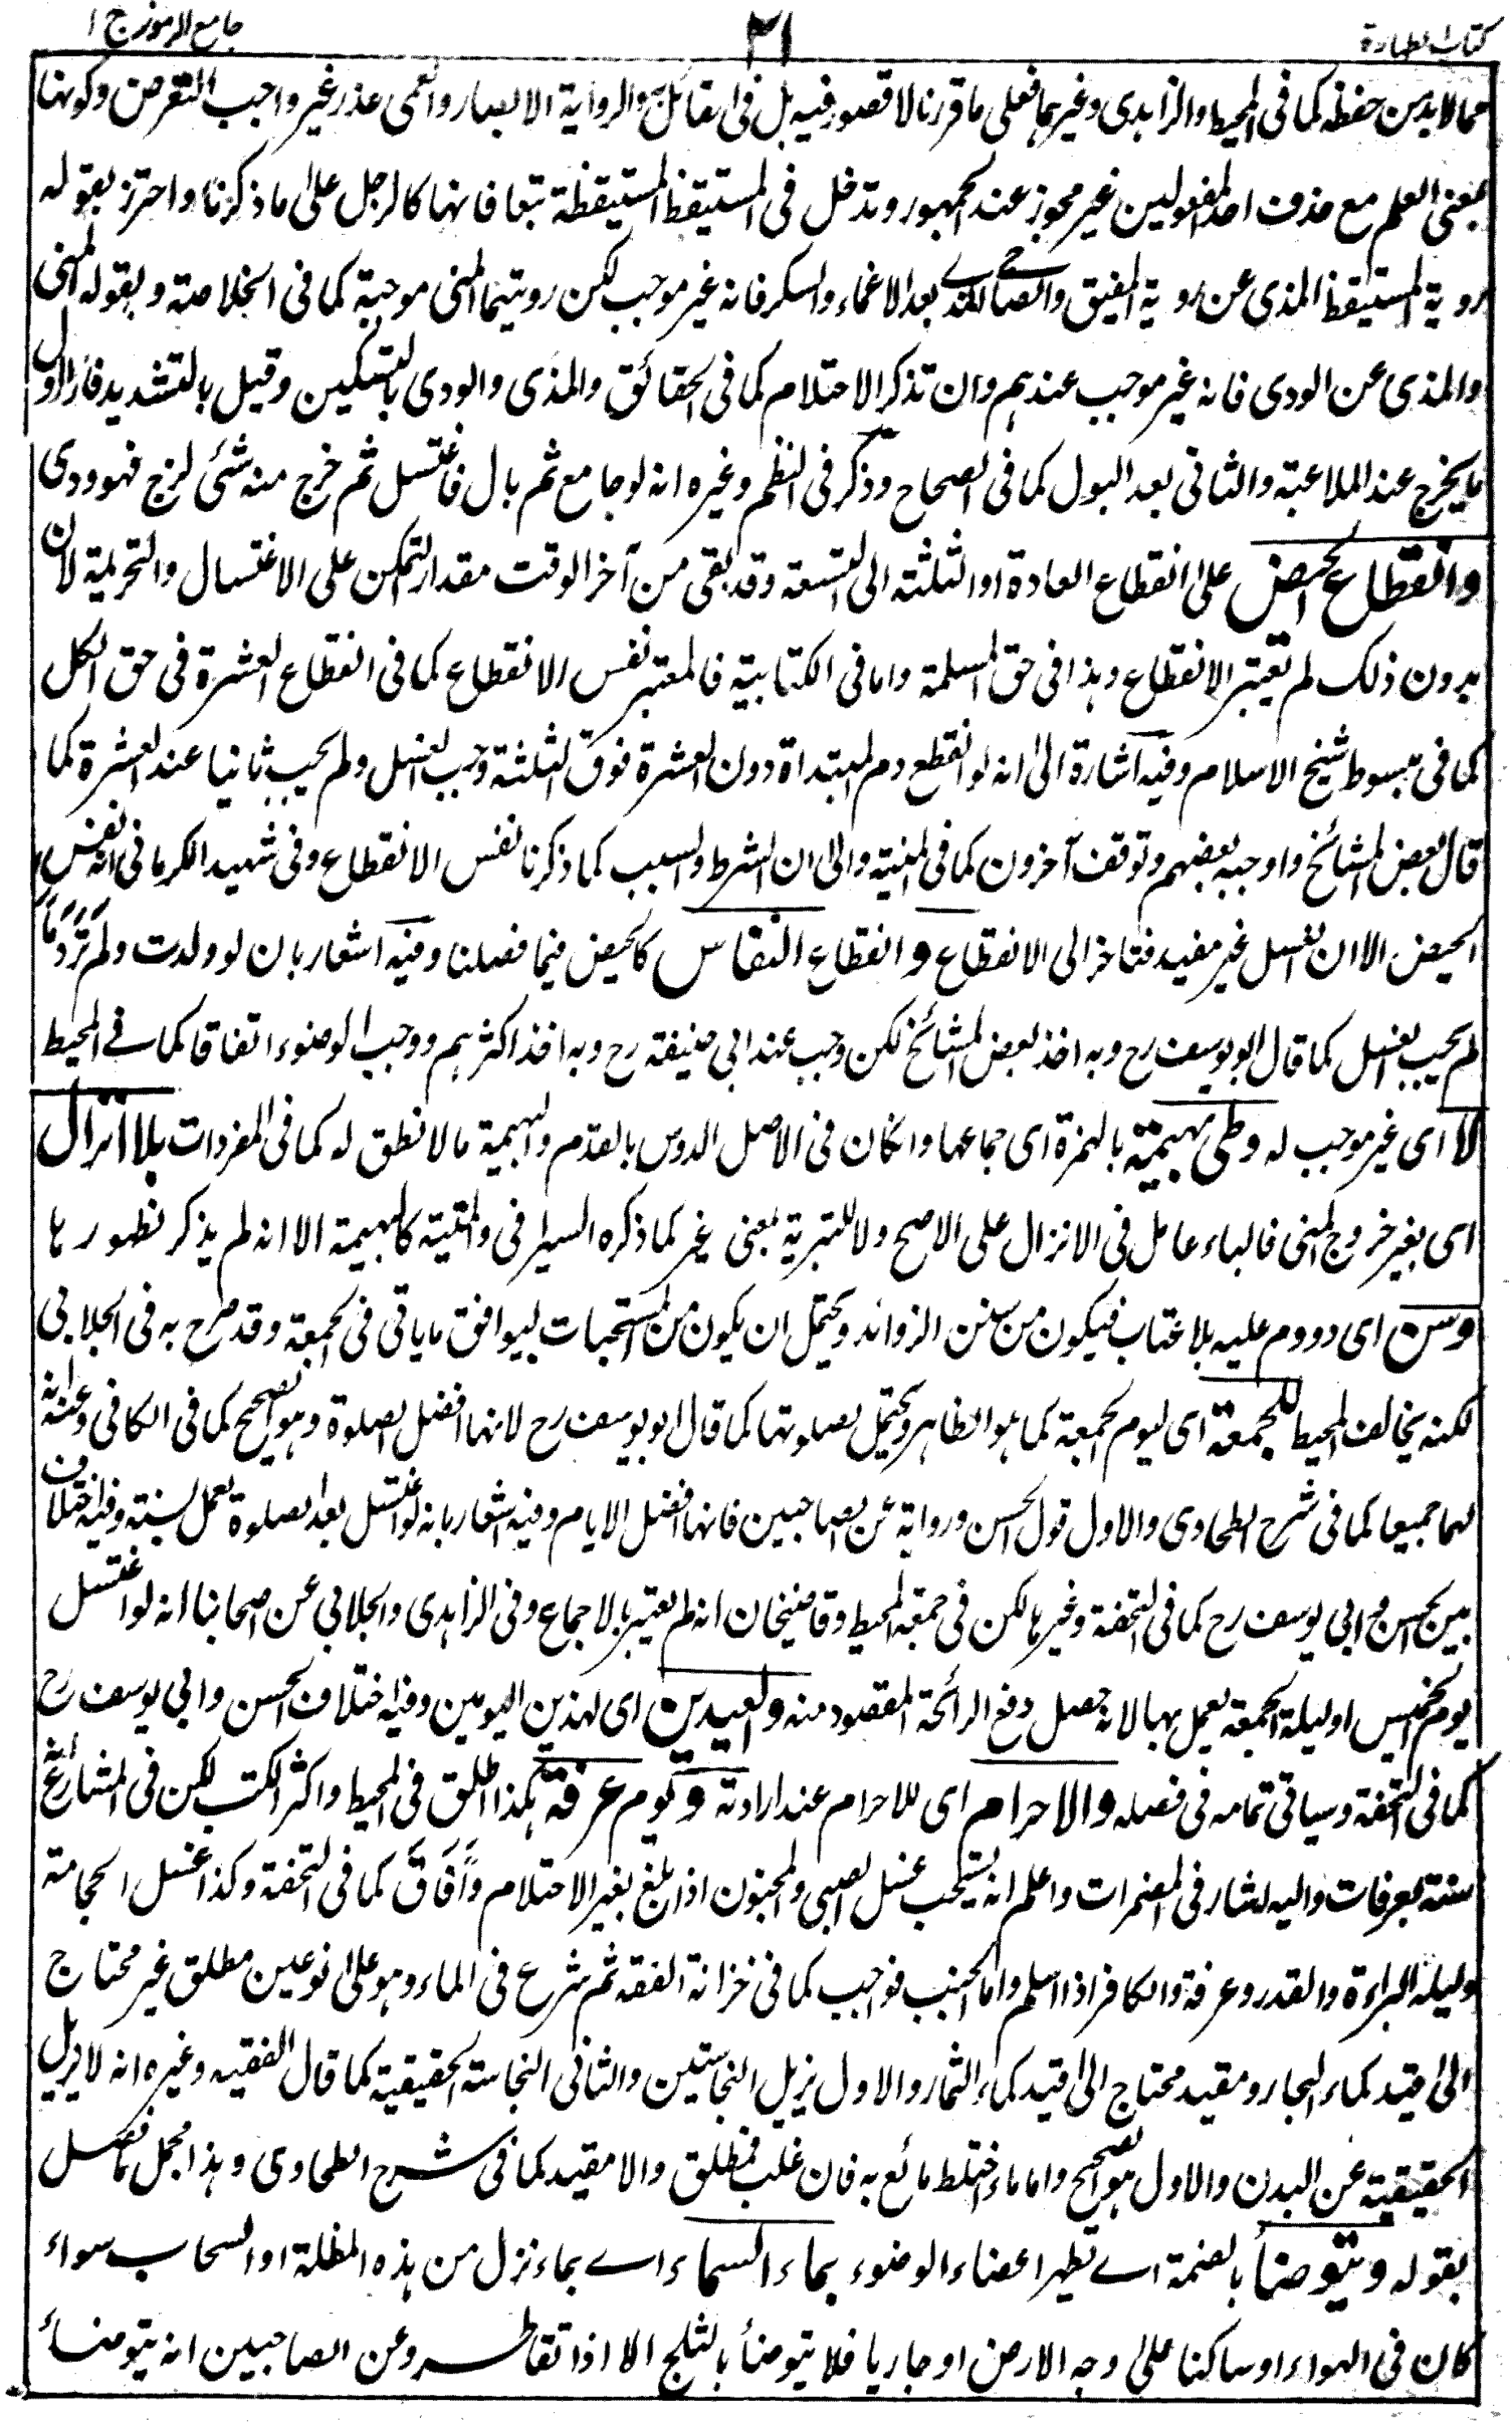 كتاب الطهارة ٢١ جامع الرموز ج ١
مما لا بد من حفظه كما فى المحيط والزاهدى وغيرهما فعلى ما قررنا لا قصور فيه بل فى القائل والرواية الابصار والعمى عذر غير واجب التعرض وكونها
بمعنى العلم مع حذف احد المفعولين غير مجوز عند الجمهور وتدخل فى المستيقظ المستيقظة تبعا فانها كالرجل على ما ذكرنا واحترز بقوله
روية المستيقظ المذى عن روية المفيق والصاحى بعد الاغماء والسكر فانه غير موجب لكن رويتهما المنى موجبة كما فى الخلاصة وبقوله المنى
والمذى عن الودى فانه غير موجب عندهم وان تذكر الاحتلام كما فى الحقائق والمذى والودى بالتسكين وقيل بالتشديد فالاول
ما يخرج عند الملاعبة والثانى بعد البول كما فى الصحاح وذكر فى النظم وغيره انه لو جامع ثم بال فاغتسل ثم خرج منه شئ لزج فهو ودى
وانقطاع الحيض على انقطاع العادة او الثلثة الى التسعة وقد بقى من آخر الوقت مقدار التمكن على الاغتسال والتحريمة لان
بدون ذلك لم تعتبر الانقطاع وهذا فى حق المسلمة واما فى الكتابية فالمعتبر نفس الانقطاع كما فى انقطاع العشرة فى حق الكل
كما فى مبسوط شيخ الاسلام وفيه اشارة الى انه لو انقطع دم المبتداة دون العشرة فوق الثلثة وجب الغسل ولم يجب ثانيا عند العشرة كما
قال بعض المشائخ واوجبه بعضهم وتوقف آخرون كما فى المنية والى ان الشرط والسبب كما ذكرنا نفس الانقطاع وفى شهيد الكرمانى انه نفس
الحيض الا ان الغسل غير مفيد فتاخر الى الانقطاع و انقطاع النفاس كالحيض فيما فصلنا وفيه اشعار بان لو ولدت ولم تر دما
لم يجب الغسل كما قال ابو يوسف رح وبه اخذ بعض المشائخ لكن وجب عند ابى حنيفة رح وبه اخذ اكثرهم ووجب الوضوء اتفاقا كما فى المحيط
لا اى غير موجب له وطى بهيمة بالهمزة اى جماعها وانكان فى الاصل الدوس بالقدم والبهيمة ما لا نطق له كما فى المفردات بلا انزال
اى بغير خروج المنى فالباء عامل فى الانزال على الاصح ولا للتبرية بمعنى غير كما ذكره السيرافى والميتة كالبهيمة الا انه لم يذكر لظهورها
وسن اى دووم عليه بلا عتاب فيكون من سنن الزوائد ويحتمل ان يكون من المستحبات ليوافق ما ياتى فى الجمعة وقد صرح به فى الجلابى
لكنه يخالف المحيط للجمعة اى ليوم الجمعة كما هو الظاهر ويحتمل لصلوتها كما قال ابو يوسف رح لانها افضل الصلوة وهو الصحيح كما فى الكافى وعنه انه
لهما جميعا كما فى شرح الطحاوى والاول قول الحسن ورواية عن الصاحبين فانها افضل الايام وفيه اشعار بانه لو اغتسل بعد الصلوة لعمل بسنة وفيه خلاف
بين الحسن وابى يوسف رح كما فى التحفة وغيرها لكن فى جمعة المحيط وقاضيخان انه لم يعتبر بالاجماع وفى الزاهدى والجلابى عن اصحابنا انه لو اغتسل
يوم الخميس او ليلة الجمعة يعمل بها لانه حصل دفع الرائحة المقصود منه والعيدين اى لهذين اليومين وفيه اختلاف الحسن وابى يوسف رح
كما فى التحفة وسياتى تمامه فى فصله والاحرام اى للاحرام عند ارادته ويوم عرفة هكذا اطلق فى المحيط واكثر الكتب لكن فى المشارع انه
سنة بعرفات واليه اشار فى المضمرات واعلم انه يستحب غسل الصبى والمجنون اذا بلغ بغير الاحتلام وافاق كما فى التحفة وكذا غسل الحجامة
وليلة البراءة والقدر وعرفة والكافر اذا اسلم واما الجنب فوجب كما فى خزانة الفقه ثم شرع فى الماء وهو على نوعين مطلق غير محتاج
الى قيد كماء البحار ومقيد محتاج الى قيد كماء الثمار والاول يزيل النجاستين والثانى النجاسة الحقيقية كما قال الفقيه وغيره انه لا يزيل
الحقيقية عن البدن والاول هو الصحيح واما ماء اختلط مائع به فان غلب فمطلق والا مقيد كما فى شرح الطحاوى وهذا مجمل ما فصل
بقوله ويتوضأ بالضمة اے تطهير اعضاء الوضوء بماء السماء اے بماء نزل من هذه المظلة او السحاب سواء
كان فى الهواء او ساكنا على وجه الارض او جاريا فلا يتوضأ بالثلج الا اذا تقاطر وعن الصاحبين انه يتوضأ